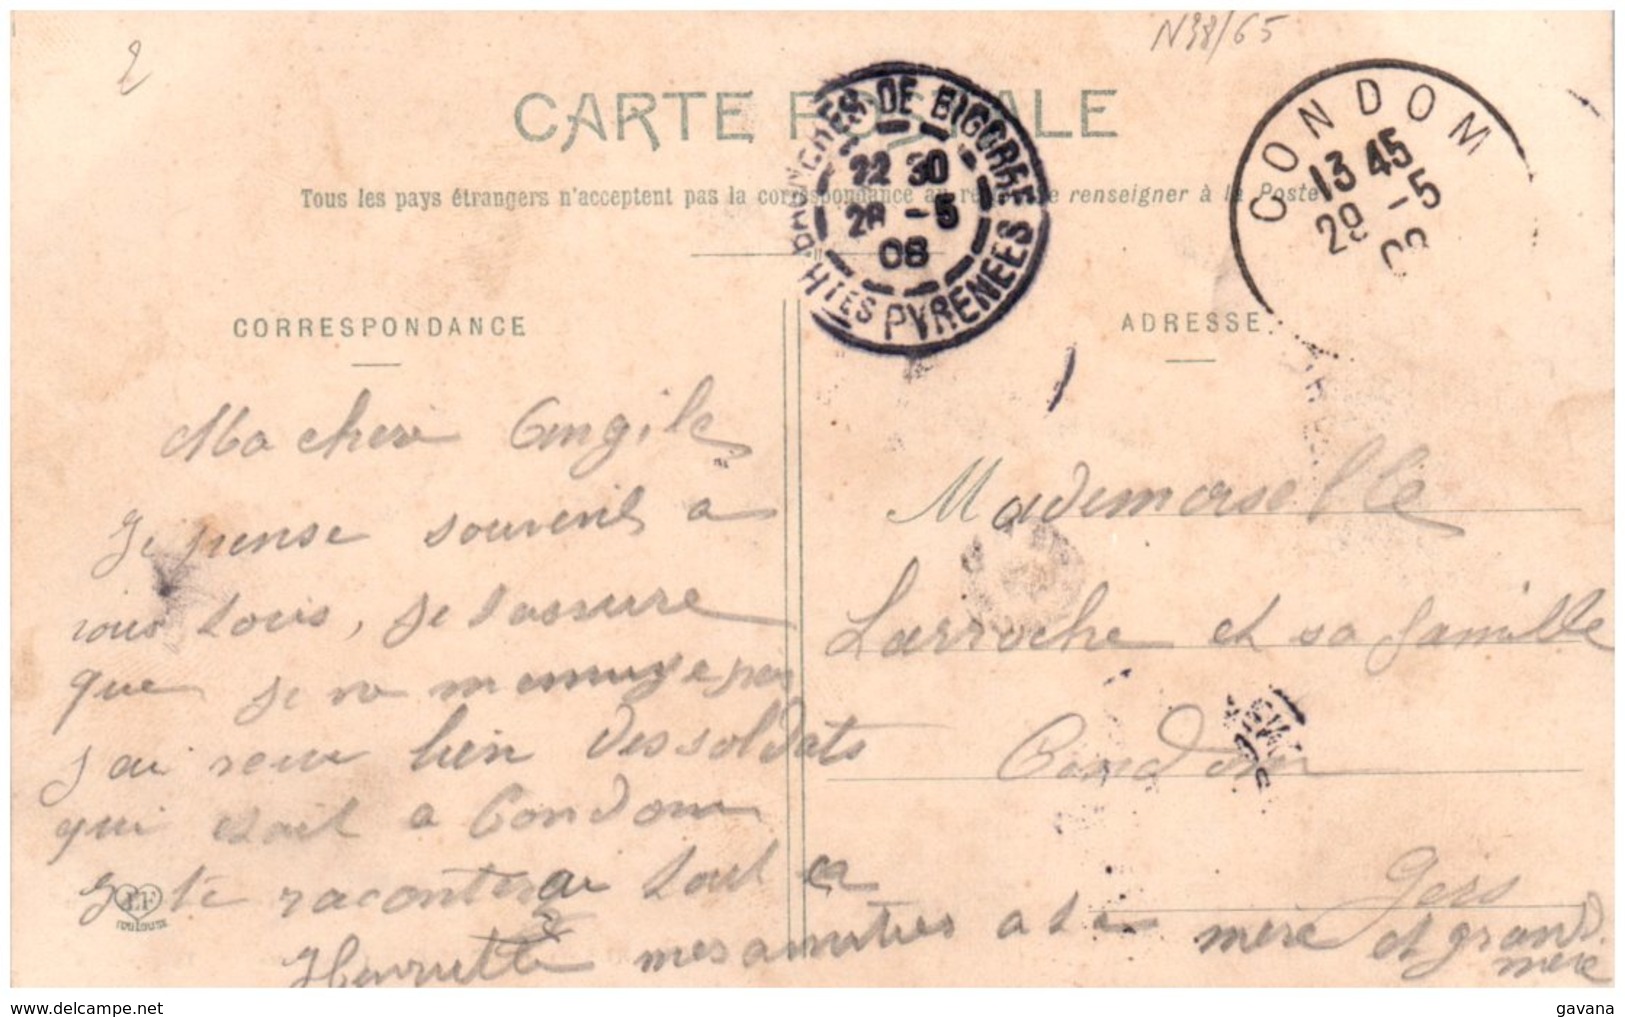 2
N38/65
CARTE POSTALE
Tous les pays étrangers n'acceptent pas la correspondance au recto. (Se renseigner à la Poste
BAGNÈRES-DE BIGORRE
22 30
28 -5
08
HTES PYRENEES
CONDOM
13 45
29 -5
08
CORRESPONDANCE
ADRESSE
Ma chere Angile
Je pense souvent a
vous tous, je t assure
que je ne m ennuye pas
j ai revu bien des soldats
qui etait a Condom
Je te raconterai tout ca
Henriette mes amities a ta mere et grand
mere
Mademoiselle
Larroche et sa famille
Condom
Gers
LF
TOULOUSE
www.delcampe.net
gavana